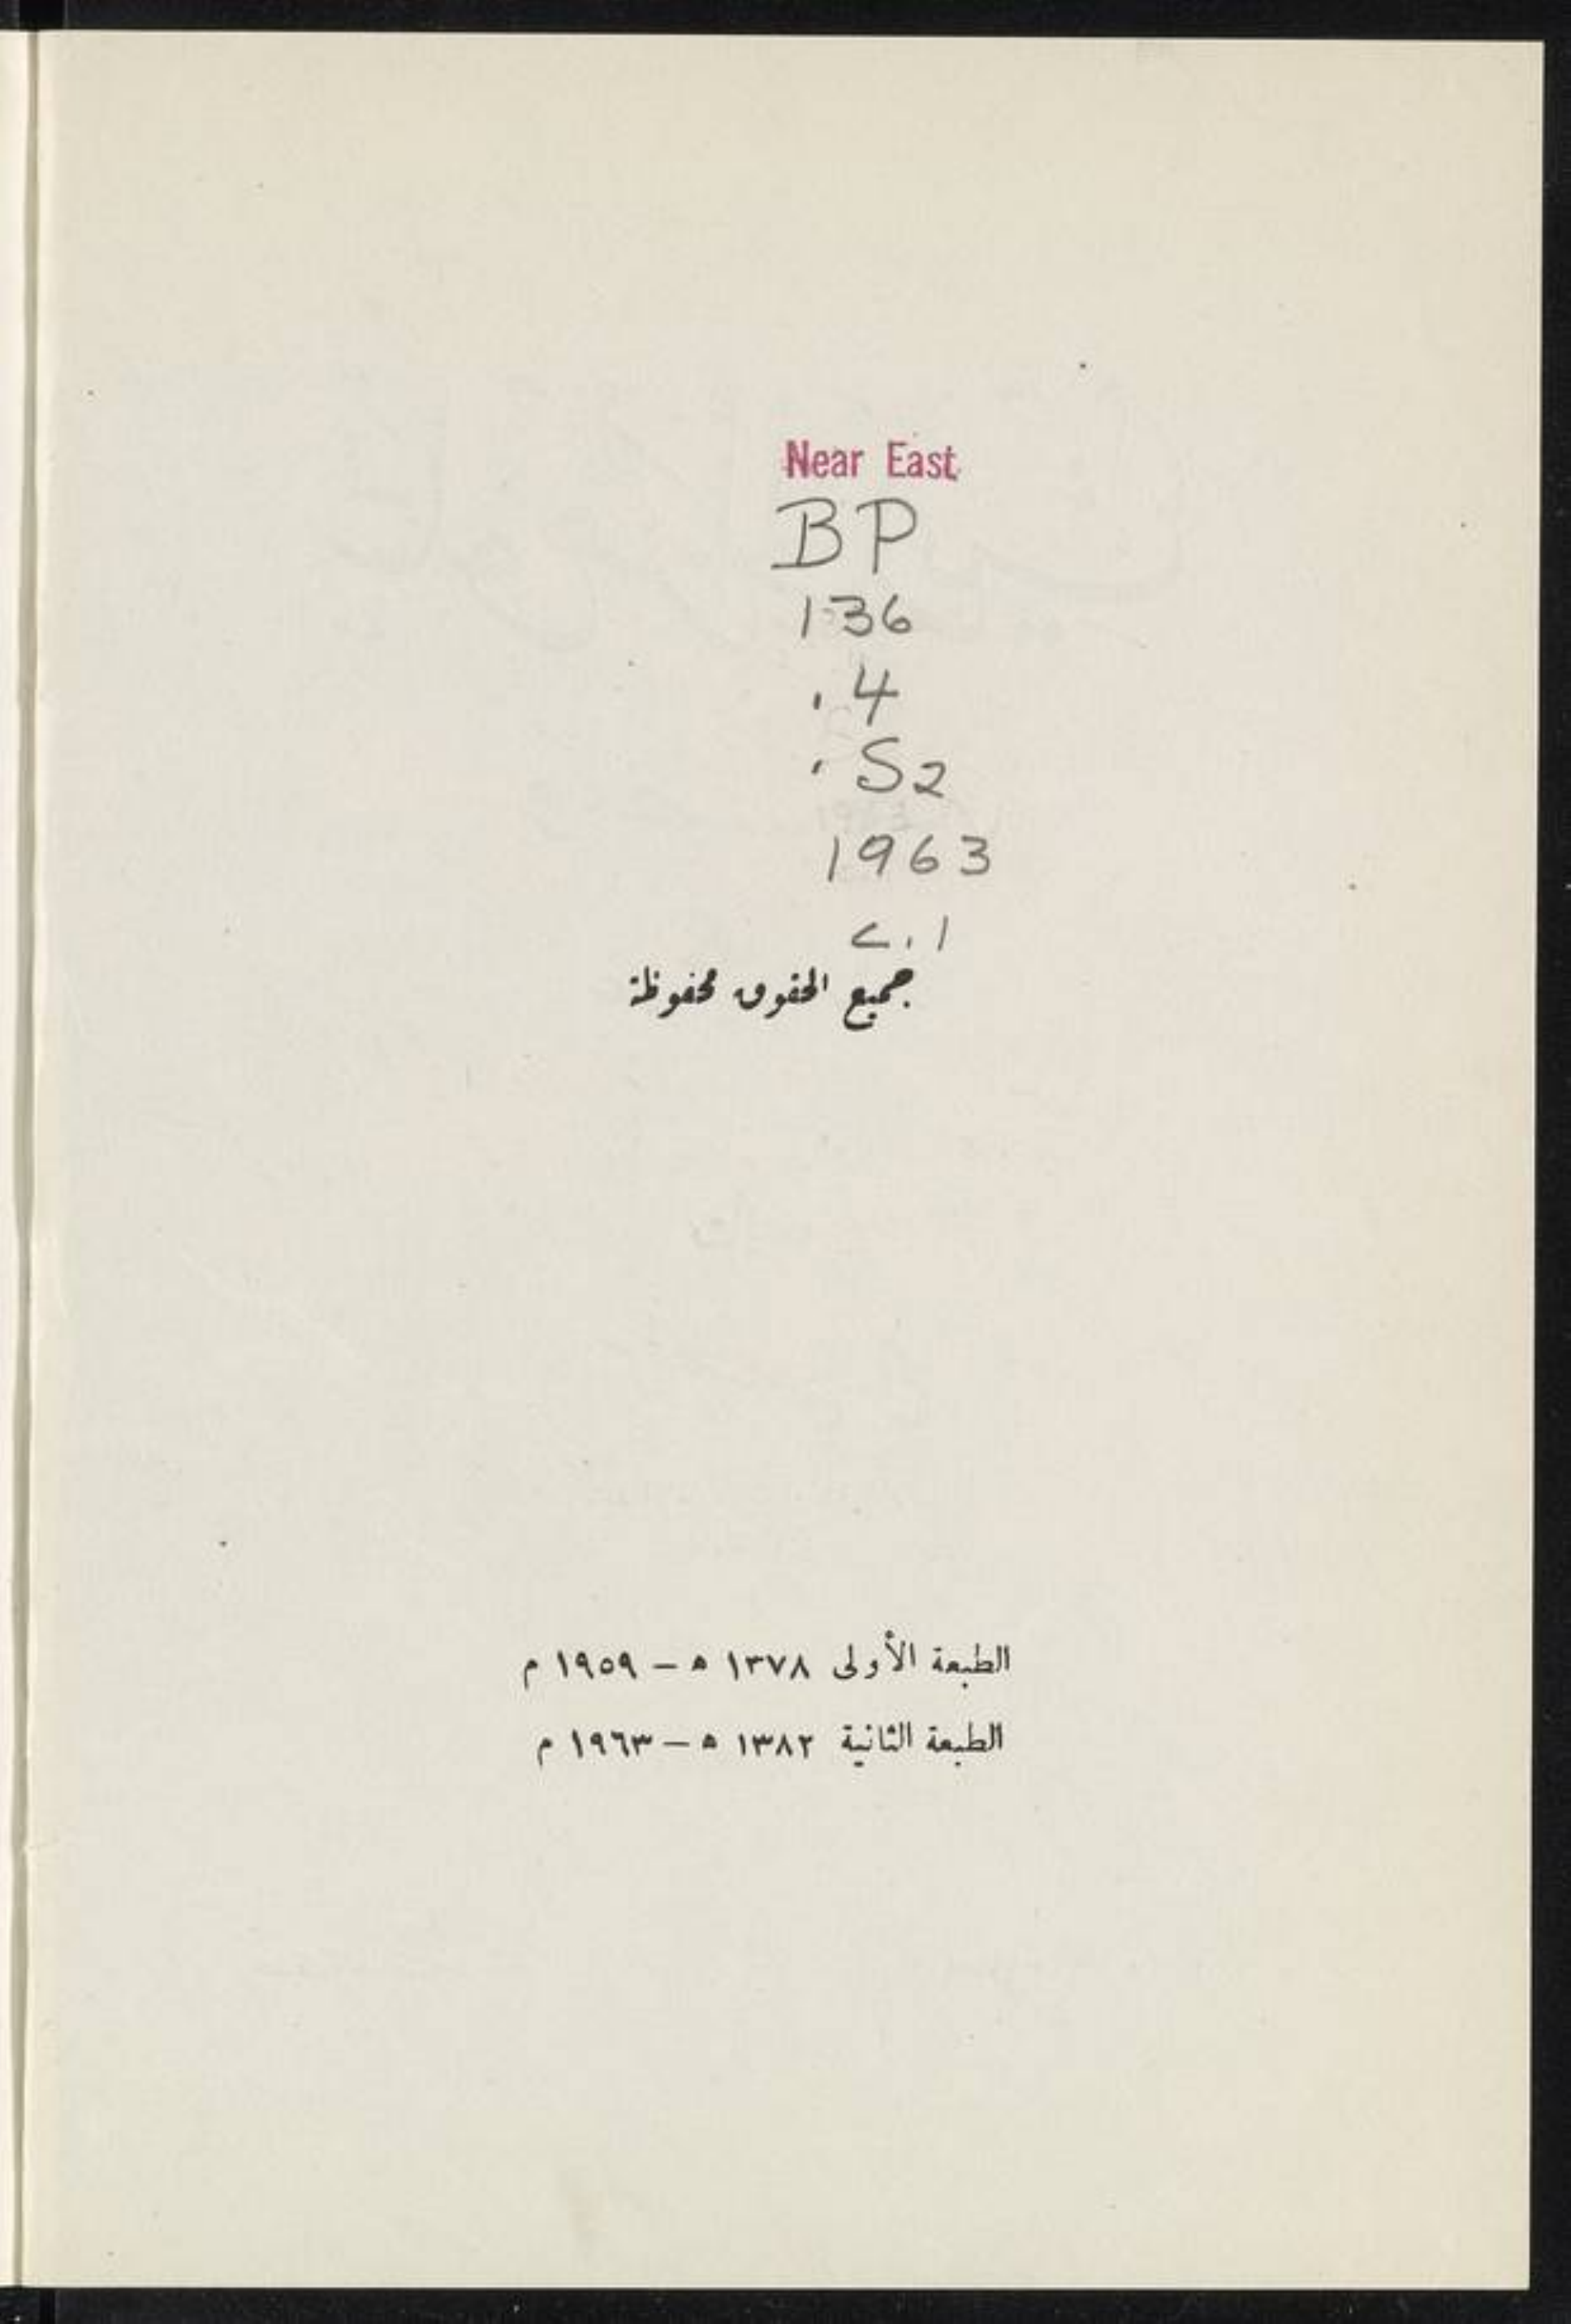 Near East
BP
136
.4
.S2
1963
c.1
جميع الحقوق محفوظة
الطبعة الأولى ١٣٧٨ ه – ١٩٥٩ م
الطبعة الثانية ١٣٨٢ ه – ١٩٦٣ م